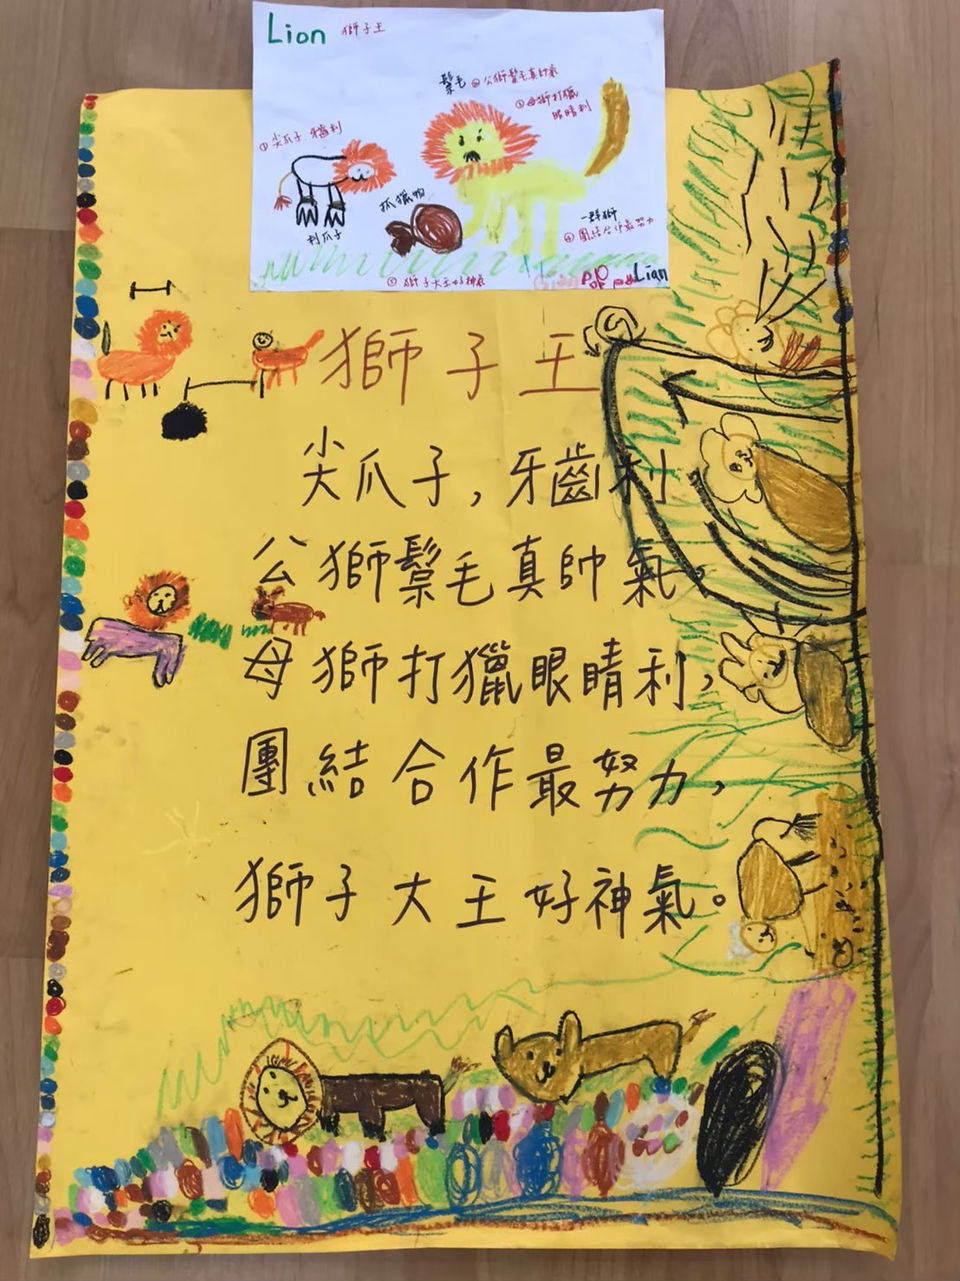 Lion 獅子王
鬃毛 ②公獅鬃毛真帥氣
③母獅打獵
眼睛利
①尖爪子、牙齒利
抓獵物
利爪子
一群獅
④團結合作最努力
⑤獅子大王好神氣
Lian
獅子王
尖爪子，牙齒利
公獅鬃毛真帥氣，
母獅打獵眼睛利，
團結合作最努力，
獅子大王好神氣。